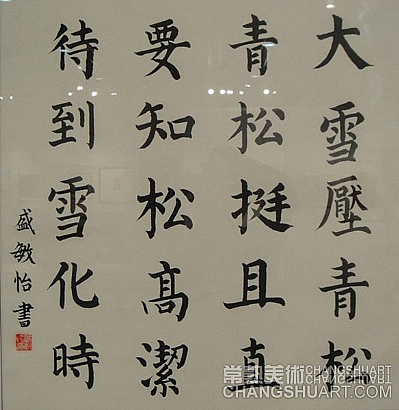 大雪壓青松
青松挺且直
要知松高潔
待到雪化時
盛敏怡書
常熟美術 CHANGSHUART
CHANGSHUART.COM